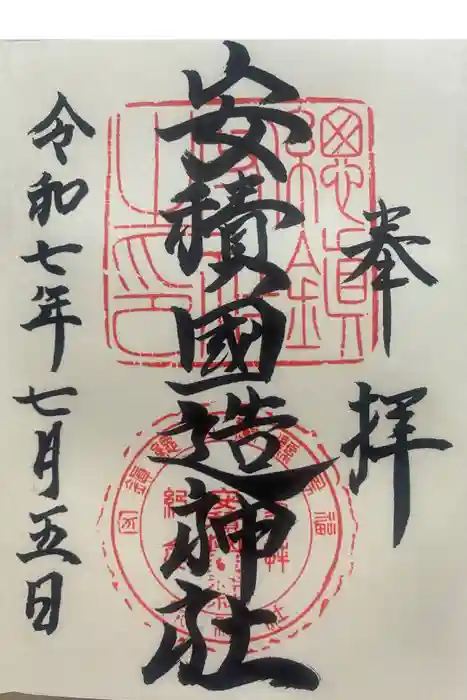 奉拝
安積國造神社
令和七年七月五日
總鎮